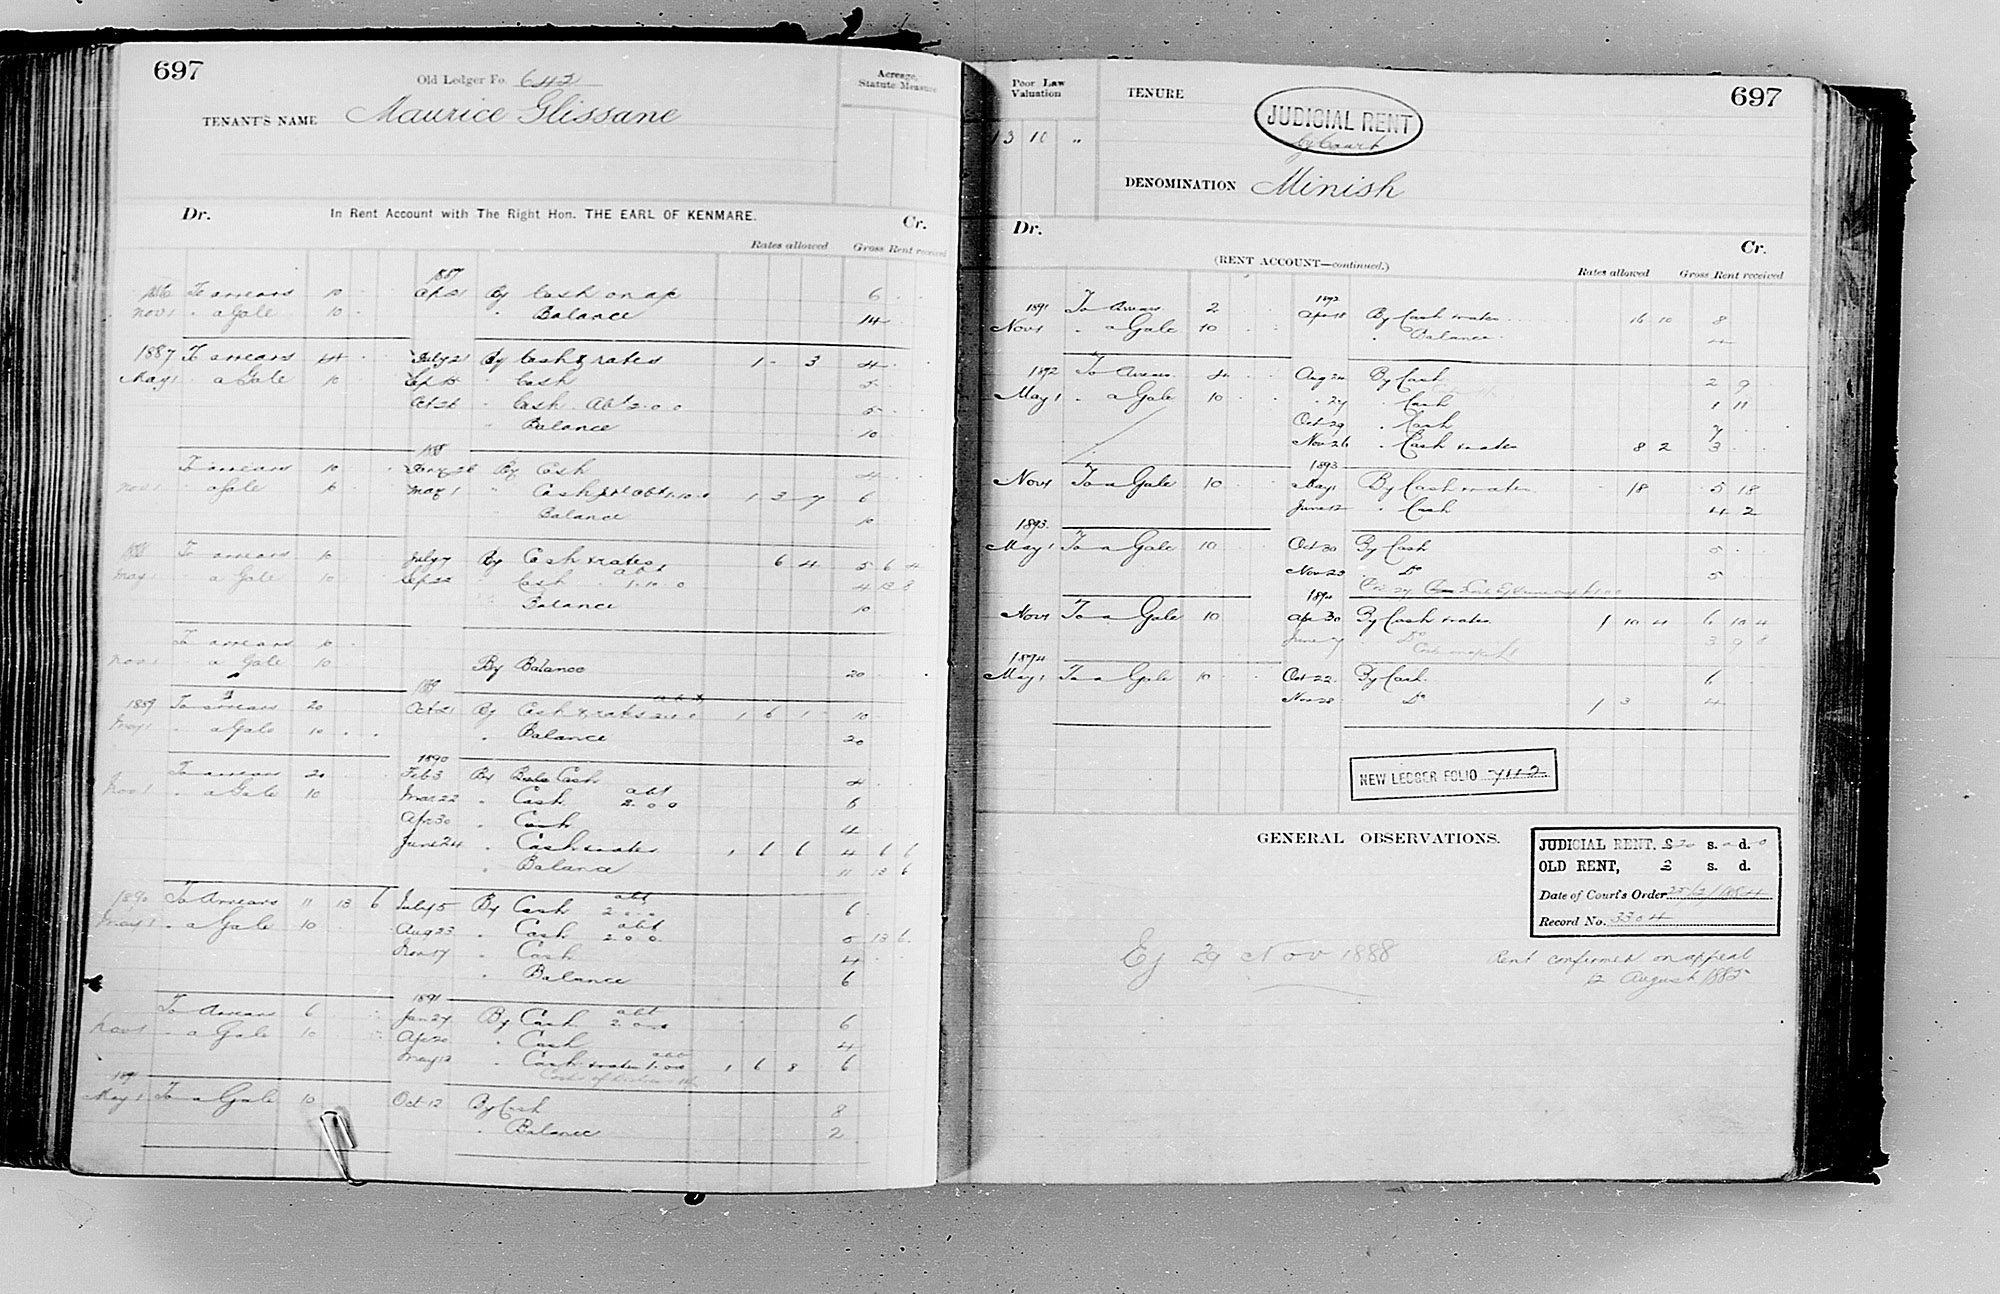 697
Old Ledger Fo. 642
TENANT'S NAME Maurice Glissane
Acreage, Statute Measure
Dr. In Rent Account with The Right Hon. THE EARL OF KENMARE. Cr.
Rates allowed Gross Rent received
1887
1886 To arrears 10 Apl 21 By Cash on a/c 6
Nov 1 " a Gale 10 " Balance 14
1887 To arrears 14 July 21 By Cash & rates 1 - 3 4
May 1 " a Gale 10 Sep 15 " Cash 5
Oct 26 " Cash Abt 2.0.0 5
" Balance 10
1888
To arrears 10 Jany 26 By Cash 4
Nov 1 " a Gale 10 May 1 " Cash 1 3 7 6
" Balance 10
1888 To arrears 10 July 7 By Cash & rates 6 4 5 6 4
May 1 " a Gale 10 Sep 22 " Cash abt 1.10.0 4 13 8
Balance 10
To arrears 10
Nov 1 " a Gale 10 By Balance 20
1889
1889 To arrears 20 Oct 21 By Cash & rates 1 6 1 10
May 1 " a Gale 10 " Balance 20
1890
To arrears 20 Feb 3 By Cash 4
Nov 1 " a Gale 10 Mar 22 " Cash abt 2.0.0 6
Apr 30 " Cash 4
June 24 " Cash & rates 1 6 6 4 6 6
" Balance 11 13 6
1890 To Arrears 11 13 6 July 5 By Cash abt 2.0.0 6
May 1 " a Gale 10 Aug 23 " Cash abt 2.0.0 5 13 6
Nov 17 " Cash 4
" Balance 6
1891
To Arrears 6 Jan 27 By Cash abt 2.0.0 6
Nov 1 " a Gale 10 Apl 20 " Cash 4
May 13 " Cash & rates abt 1.0.0 1 6 8 6
1891
May 1 To a Gale 10 Oct 12 By Cash 8
" Balance 2
Poor Law Valuation
13 10 "
TENURE
697
JUDICIAL RENT
by Court
DENOMINATION Minish
Dr. Cr.
(RENT ACCOUNT—continued.)
Rates allowed Gross Rent received
1892
1891 To Arrears 2 Apr 18 By Cash & rates 16 10 8
Nov 1 " a Gale 10 " Balance 4
1892 To Arrears 4 Aug 24 By Cash 2 9
May 1 " a Gale 10 " 27 " Cash 1 11
Oct 29 " Cash 7
Nov 26 " Cash & rates 8 2 3
1893
Nov 1 To a Gale 10 May 1 By Cash & rates 18 5 18
June 12 " Cash 4 2
1893
May 1 To a Gale 10 Oct 30 By Cash 5
Nov 23 Do 5
1894
Nov 1 To a Gale 10 Apr 30 By Cash & rates 1 10 4 6 10 4
June 7 Do 3 9 8
1894
May 1 To a Gale 10 Oct 22 By Cash 6
Nov 28 Do 1 3 4
NEW LEDGER FOLIO 7112
GENERAL OBSERVATIONS.
JUDICIAL RENT, £20 s. 0 d. 0
OLD RENT, £ s. d.
Date of Court's Order 25/2/1884
Record No. 3304
Ej 29 Nov 1888
Rent confirmed on appeal
12 August 1885